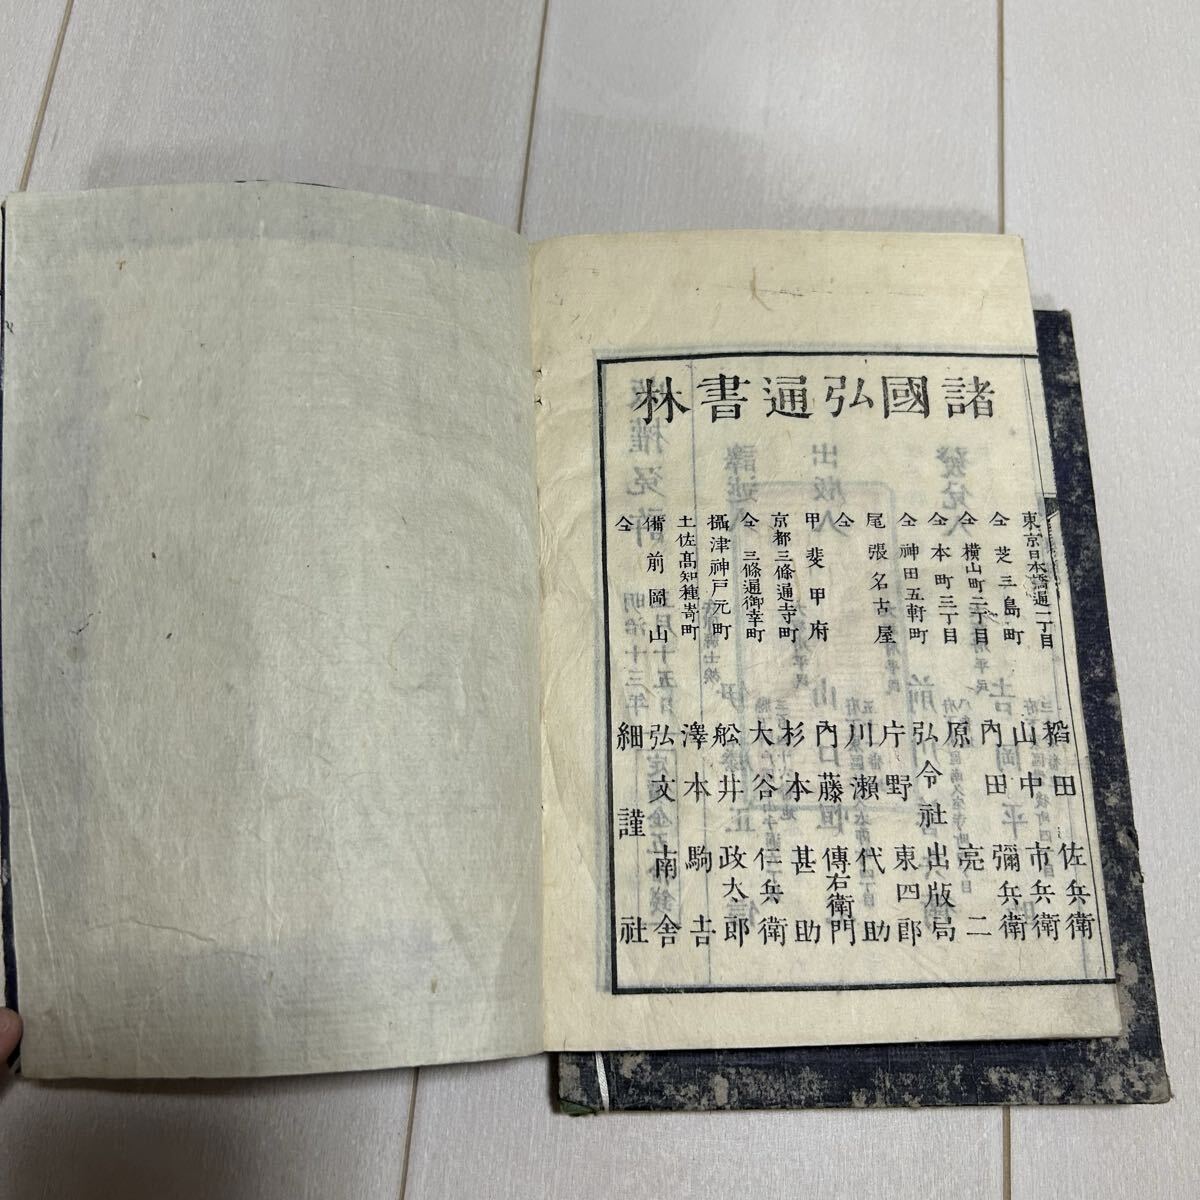 諸國弘通書林
東京日本橋通一丁目 稻田佐兵衛
仝芝三島町 山中市兵衛
仝橫山町二丁目 內田彌兵衛
仝本町三丁目 原亮二
仝神田五軒町 弘令社出版局
尾張名古屋 片野東四郎
仝 川瀨代助
甲斐甲府 內藤傳右衛門
京都三條通寺町 杉本甚助
仝三條通御幸町 大谷仁兵衛
攝津神戸元町 舩井政太郎
土佐高知種嵜町 澤本駒吉
備前岡山 弘文南舍
仝 細謹社